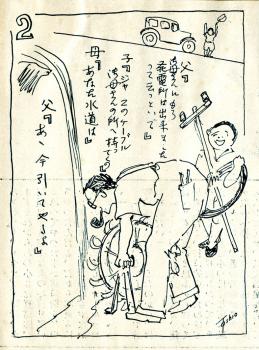 2
父『
お母さんにもう
発電所は出来ました
って云っといで』
子『ジャ このケーブル
お母さんの所へ持ってく
母『
あなた水道は』
父『あゝ今引いてやるよ』